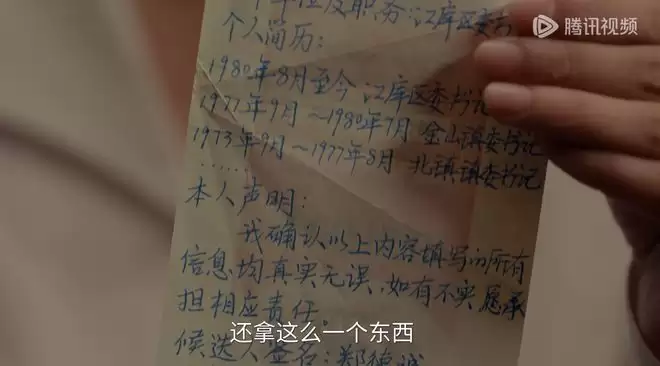 单位及职务:江库区委书
个人简历:
1980年8月至今 江库区委书记
1977年9月～1980年7月 金山镇委书记
1973年9月～1977年8月 北琪镇委书记
......
本人声明:
我确认以上内容填写的所有
信息均真实无误,如有不实愿承
担相应责任。
候选人签名:郑德诚
腾讯视频
还拿这么一个东西